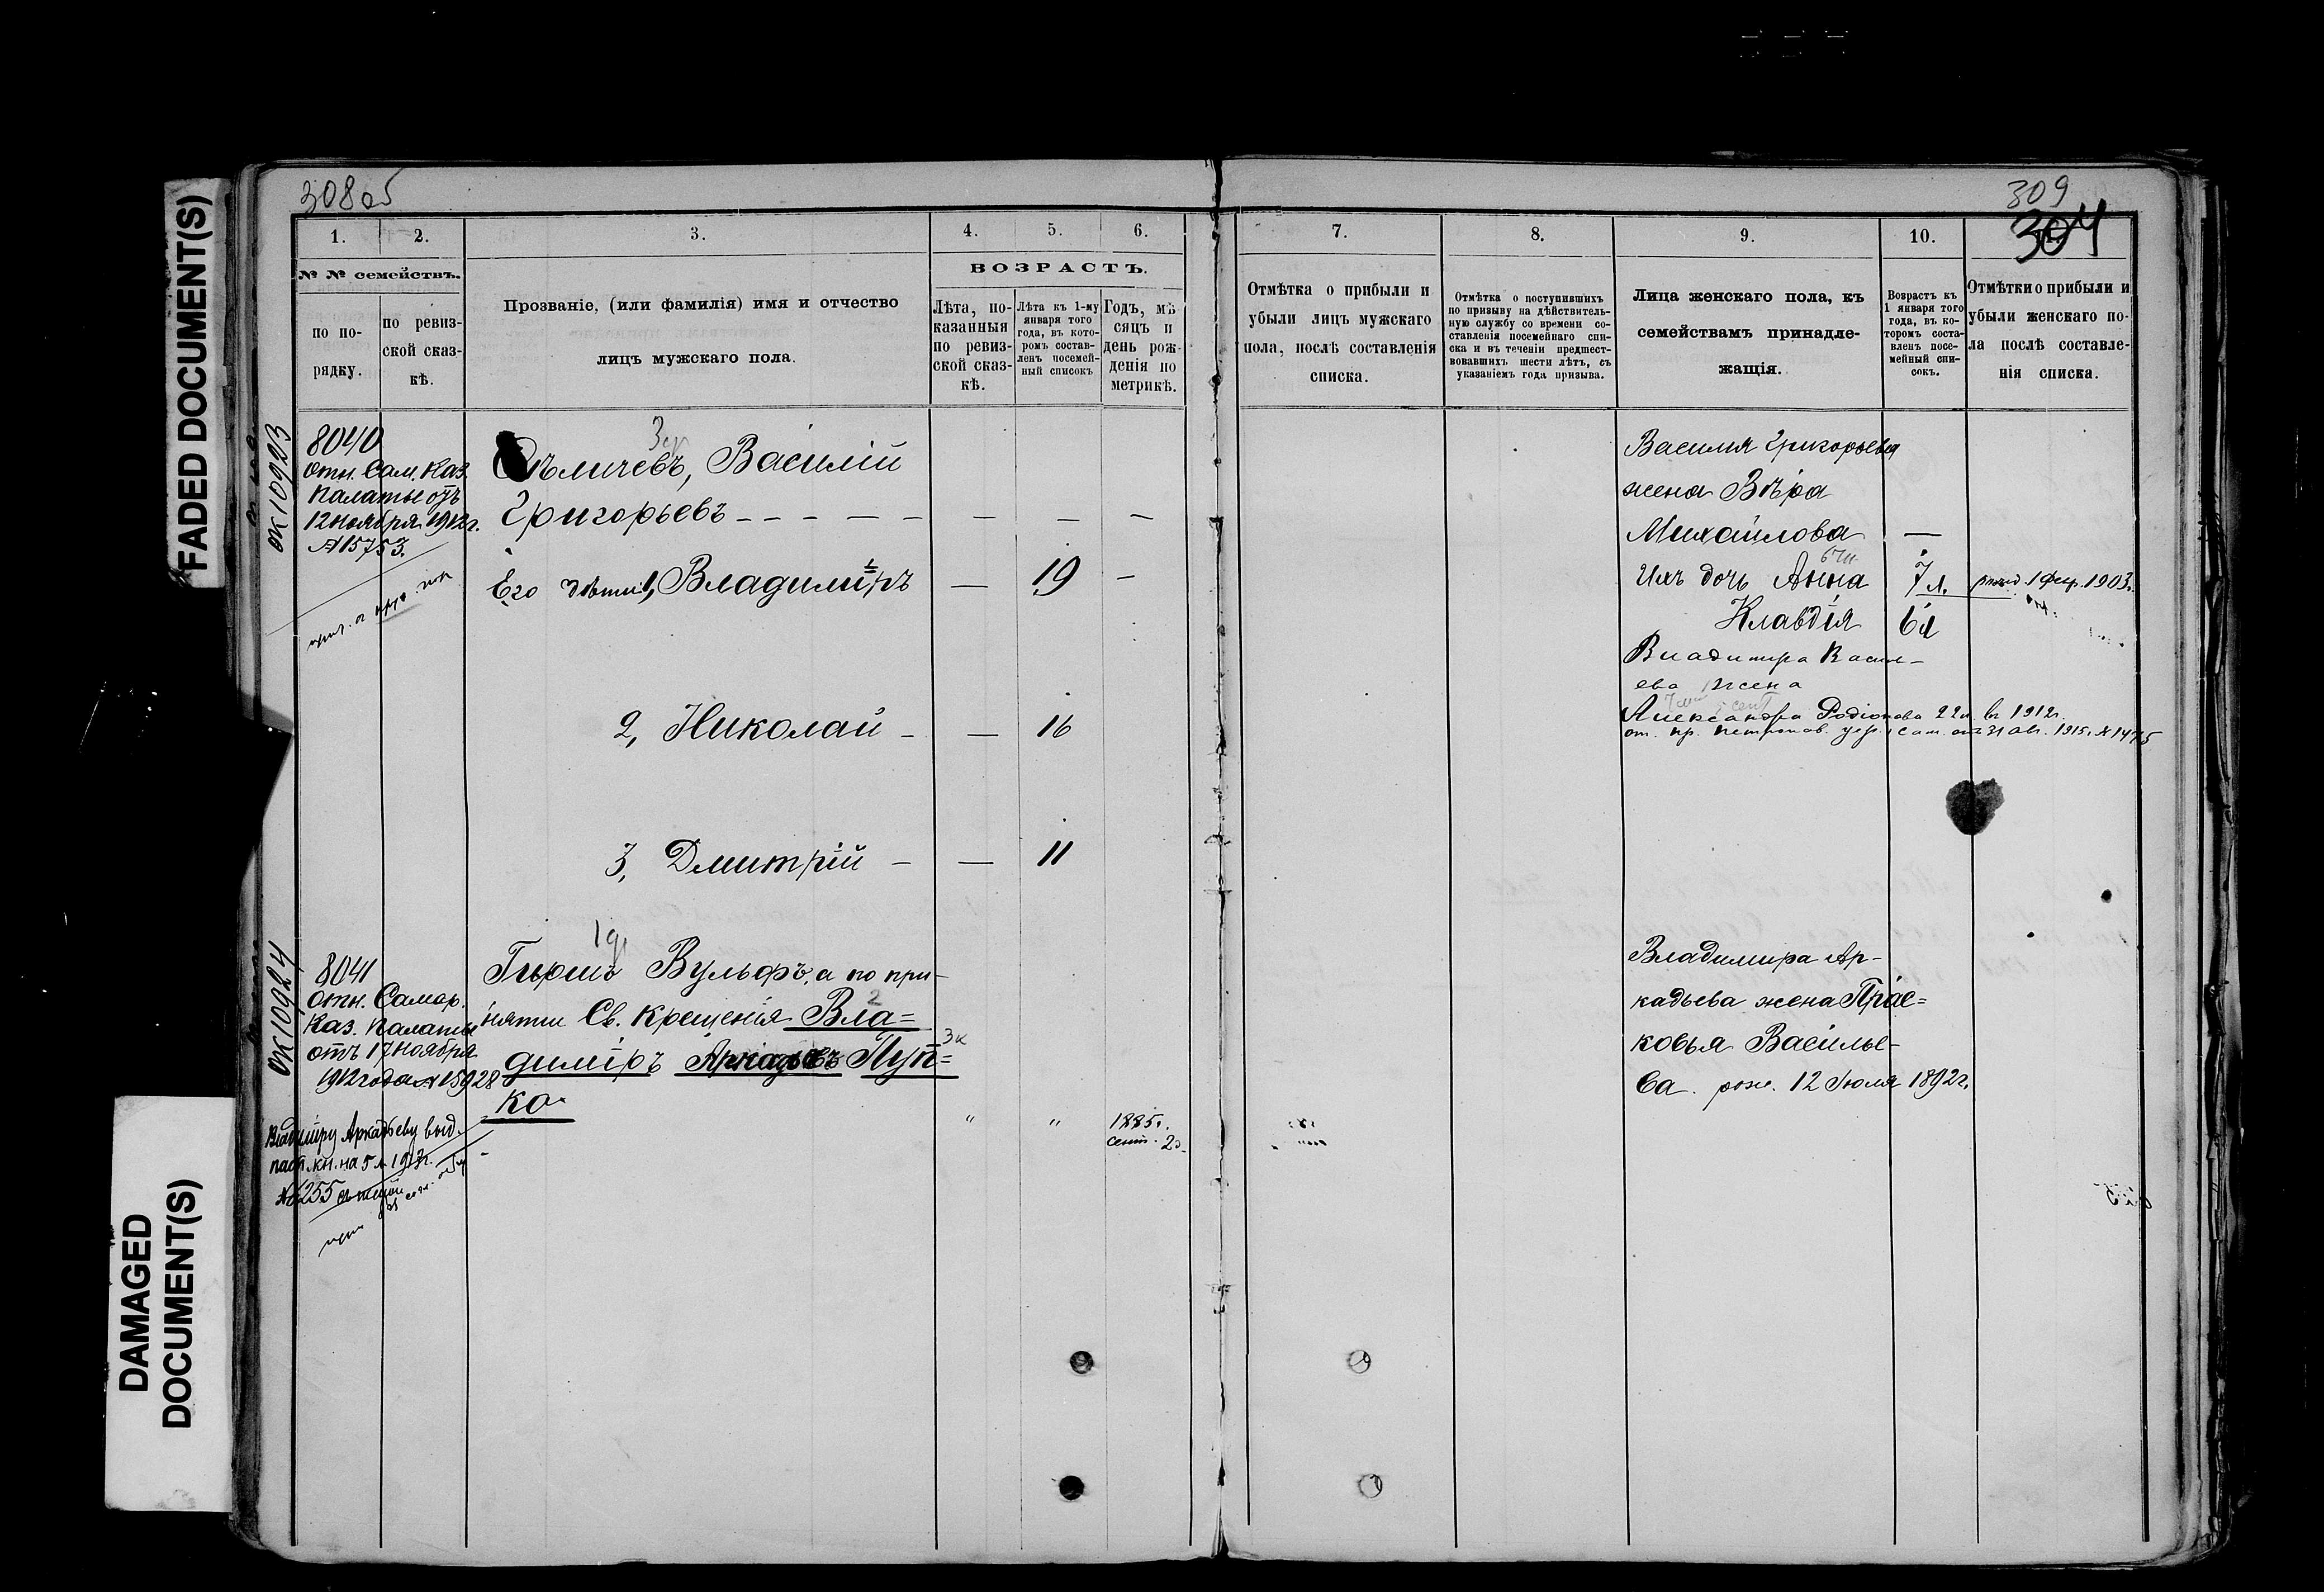 FADED DOCUMENT(S)
DAMAGED
DOCUMENT(S)
308об
1.
2.
3.
4.
5.
6.
№ № семействъ.
ВОЗРАСТЪ.
по по-
рядку.
по ревиз-
ской сказ-
кѣ.
Прозваніе, (или фамилія) имя и отчество
лицъ мужскаго пола.
Лѣта, по-
казанныя
по ревиз-
ской сказ-
кѣ.
Лѣта къ 1-му
января того
года, въ кото-
ромъ состав-
ленъ посемей-
ный списокъ
Годъ, мѣ
сяцъ и
день рож-
денія по
метрикѣ.
ок 10923
8040
отн. Сам. Каз.
Палаты отъ
12 ноября 1912 г.
№ 15753.
Василій
Григорьевъ
Его дѣти 1, Владиміръ — 19 —
2, Николай — 16
3, Дмитрій — 11
ок 10924
8041
отн. Самар.
Каз. Палаты
отъ 17 ноября
1912 года № 15928
Владиміру Аркадьеву выд.
пасп. кн. на 5 л. 1913 г.
№ 255
Гиршъ Вульфъ, а по при-
нятіи Св. Крещенія Вла=
диміръ Аркадьевъ Пуп=
ко
" " 1885 г.
сент.
309
304
7.
8.
9.
10.
Отмѣтка о прибыли и
убыли лицъ мужскаго
пола, послѣ составленія
списка.
Отмѣтка о поступившихъ
по призыву на дѣйствитель-
ную службу со времени со-
ставленія посемейнаго спи-
ска и въ теченіи предшест-
вовавшихъ шести лѣтъ, съ
указаніемъ года призыва.
Лица женскаго пола, къ
семействамъ принадле-
жащія.
Возрастъ къ
1 января того
года, въ ко-
торомъ соста-
вленъ посе-
мейный спи-
сокъ.
Отмѣтки о прибыли и
убыли женскаго по-
ла послѣ составле-
нія списка.
Василія Григорьева
жена Вѣра
Михайлова —
Ихъ дочь Анна 7 л. 1 фев. 1903 г.
Клавдія 6 л
Владимира Васил-
ева жена
Александра Родіонова 22 л. въ 1912 г.
Владимира Ар-
кадьева жена Прас=
ковья Василье-
ва. рож. 12 Іюля 1892 г.